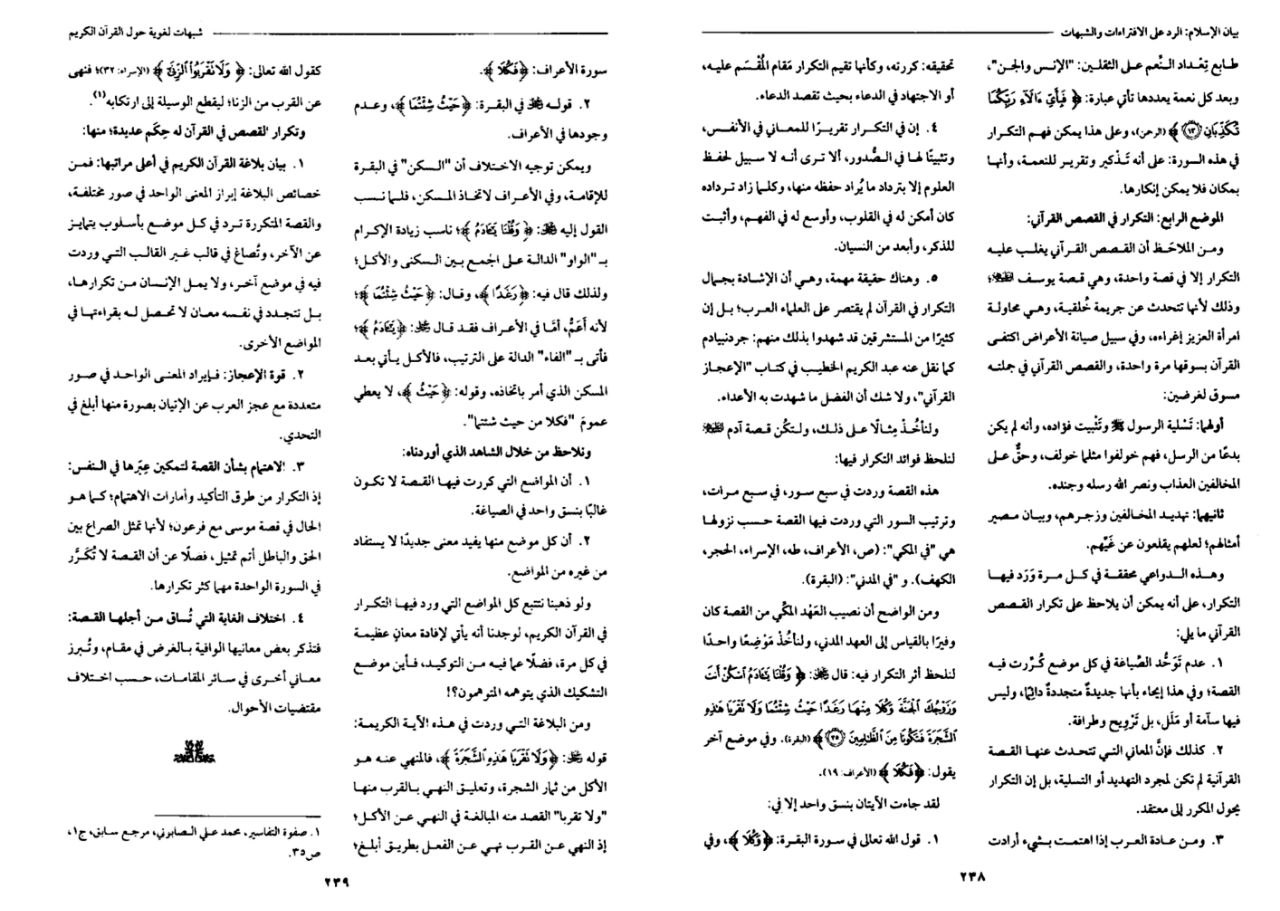 بيان الإسلام: الرد على الافتراءات والشبهات
طابع تِعْداد النِّعم على الثقلين: "الإنس والجن"،
وبعد كل نعمة يعددها تأتي عبارة: ﴿ فَبِأَيِّ ءَالَآءِ رَبِّكُمَا
تُكَذِّبَانِ ﴿١٣﴾ ﴾ (الرحمن)، وعلى هذا يمكن فهم التكرار
في هذه السورة: على أنه تَذْكير وتقرير للنعمة، وأنها
بمكان فلا يمكن إنكارها.
الموضع الرابع: التكرار في القصص القرآني:
ومـن الملاحَظ أن القصـص القـرآني يغلب عليـه
التكرار إلا في قصة واحدة، وهي قصـة يوسـف ﷺ؛
وذلك لأنها تتحدث عن جريمة خُلقية، وهـي محاولـة
امرأة العزيز إغراءه، وفي سبيل صيانة الأعراض اكتفـى
القرآن بسوقها مرة واحدة، والقصص القرآني في جملتـه
مسوق لغرضين:
أولهما: تَسْلية الرسول ﷺ وتَثْبيت فؤاده، وأنه لم يكن
بدعًا من الرسل، فهم خولفوا مثلما خولف، وحقٌّ عـلى
المخالفين العذاب ونصر الله رسله وجنده.
ثانيهما: تهديـد المخـالفين وزجـرهم، وبيـان مصـير
أمثالهم؛ لعلهم يقلعون عن غَيِّهم.
وهـذه الـدواعي محققـة في كـل مرة وَرَد فيهـا
التكرار، على أنه يمكن أن يلاحظ على تكرار القصـص
القرآني ما يلي:
١. عدم تَوَحُّد الصِّياغة في كل موضع كُررت فيـه
القصة؛ وفي هذا إيحاء بأنها جديدةٌ متجددةٌ دائمًا، وليس
فيها سآمة أو مَلَل، بل تَرْويح وطرافة.
٢. كذلك فإنَّ المعاني التـي تتحـدث عنهـا القصـة
القرآنية لم تكن لمجرد التهديد أو التسلية، بل إن التكرار
يحول المكرر إلى معتقد.
٣. ومـن عـادة العـرب إذا اهتمـت بـشيء أرادت
تحقيقه: كررته، وكأنها تقيم التكرار مَقام المُقْسَم عليـه،
أو الاجتهاد في الدعاء بحيث تقصد الدعاء.
٤. إن في التكـرار تقريـرًا للمعـاني في الأنفـس،
وتثبيتًا لهـا في الصُّـدور، ألا تـرى أنـه لا سـبيل لحفـظ
العلوم إلا بترداد ما يُراد حفظه منها، وكلـما زاد تـرداده
كان أمكن له في القلوب، وأوسع له في الفهـم، وأثبـت
للذكر، وأبعد من النسيان.
٥. وهنـاك حقيقـة مهمـة، وهـي أن الإشـادة بجمال
التكرار في القرآن لم يقتصر على العلماء العرب؛ بـل إن
كثيرًا من المستشرقين قد شهدوا بذلك منهم: جردنبيادم
كما نقل عنه عبد الكريم الخطيب في كتاب "الإعجـاز
القرآني"، ولا شك أن الفضل ما شهدت به الأعداء.
ولنأخُـذْ مِثـالًا عـلى ذلـك، ولـتكُن قصـة آدم ﷺ
لنلحظ فوائد التكرار فيها:
هذه القصة وردت في سبع سـور، في سـبع مـرات،
وترتيب السور التي وردت فيها القصة حسـب نزولهـا
هي "في المكي": (ص، الأعراف، طه، الإسراء، الحجر،
الكهف). و "في المدني": (البقرة).
ومن الواضح أن نصيب العَهْد المكّي من القصة كان
وفيرًا بالقياس إلى العهد المدني، ولنأخُذْ مَوْضِعًا واحـدًا
لنلحظ أثر التكرار فيه: قال ﷻ: ﴿ وَقُلْنَا يَٰٓـَٔادَمُ ٱسْكُنْ أَنتَ
وَزَوْجُكَ ٱلْجَنَّةَ وَكُلَا مِنْهَا رَغَدًا حَيْثُ شِئْتُمَا وَلَا نَقْرَبَا هَٰذِهِ
ٱلشَّجَرَةَ فَتَكُونَا مِنَ ٱلظَّٰلِمِينَ ﴿٣٥﴾ ﴾ (البقرة). وفي موضع آخر
يقول: ﴿ فَكُلَا ﴾ (الأعراف: ١٩).
لقد جاءت الآيتان بنسق واحد إلا في:
١. قول الله تعالى في سورة البقرة: ﴿ وَكُلَا ﴾، وفي
٢٣٨
شبهات لغوية حول القرآن الكريم
سورة الأعراف: ﴿ فَكُلَا ﴾.
٢. قولـه ﷻ في البقـرة: ﴿ حَيْثُ شِئْتُمَا ﴾، وعـدم
وجودها في الأعراف.
ويمكن توجيه الاختـلاف أن "السـكن" في البقـرة
للإقامـة، وفي الأعراف لاتخـاذ المسـكن، فلـما نسـب
القول إليه ﷻ: ﴿ وَقُلْنَا يَٰٓـَٔادَمُ ﴾؛ ناسب زيادة الإكرام
بـ "الواو" الدالة عـلى الجمـع بـين السـكنى والأكـل؛
ولذلك قال فيه: ﴿ رَغَدًا ﴾، وقـال: ﴿ حَيْثُ شِئْتُمَا ﴾؛
لأنه أعَمُّ، أمّا في الأعراف فقـد قـال ﷻ: ﴿ يَٰٓـَٔادَمُ ﴾؛
فأتى بـ "الفاء" الدالة على الترتيب، فالأكـل يـأتي بعـد
المسكن الذي أمر باتخاذه، وقوله: ﴿ حَيْثُ ﴾، لا يعطي
عمومَ "فكلا من حيث شئتما".
ونلاحظ من خلال الشاهد الذي أوردناه:
١. أن المواضع التي كررت فيهـا القصـة لا تكـون
غالبًا بنسق واحد في الصياغة.
٢. أن كل موضع منها يفيد معنى جديدًا لا يستفاد
من غيره من المواضع.
ولو ذهبنا نتتبع كل المواضع التي ورد فيهـا التكرار
في القرآن الكريم، لوجدنا أنه يأتي لإفادة معانٍ عظيمـة
في كل مرة، فضلًا عما فيـه مـن التوكيـد، فـأين موضـع
التشكيك الذي يتوهمه المتوهمون؟!
ومن البلاغة التـي وردت في هـذه الآيـة الكريمـة:
قوله ﷻ: ﴿ وَلَا نَقْرَبَا هَٰذِهِ ٱلشَّجَرَةَ ﴾، فالمنهي عنـه هـو
الأكل من ثمار الشجرة، وتعليـق النهـي بـالقرب منهـا
"ولا تقربا" القصد منه المبالغة في النهـي عـن الأكـل؛
إذ النهي عن القرب نهـي عـن الفعـل بطريـق أبلـغ؛
كقول الله تعالى: ﴿ وَلَا نَقْرَبُوا۟ ٱلزِّنَىٰٓ ﴾ (الإسراء: ٣٢)؛ فنهى
عن القرب من الزنا؛ ليقطع الوسيلة إلى ارتكابه(١).
وتكرار القصص في القرآن له حِكَم عديدة؛ منها:
١. بيان بلاغة القرآن الكريم في أعلى مراتبها: فمـن
خصائص البلاغة إبراز المعنى الواحد في صور مختلفـة،
والقصة المتكررة تـرد في كـل موضـع بأسـلوب يتمايـز
عن الآخر، وتُصاغ في قالب غـير القالب التـي وردت
فيه في موضع آخـر، ولا يمـل الإنسـان مـن تكرارهـا،
بـل تتجدد في نفسـه معـان لا تحصـل لـه بقراءتهـا في
المواضع الأخرى.
٢. قوة الإعجاز: فـإيراد المعنـى الواحـد في صـور
متعددة مع عجز العرب عن الإتيان بصورة منها أبلغ في
التحدي.
٣. الاهتمام بشأن القصة لتمكين عِبَرها في الـنفس:
إذ التكرار من طرق التأكيد وأمارات الاهتمام؛ كـما هـو
الحال في قصة موسى مع فرعون؛ لأنها تمثل الصراع بين
الحق والباطل أتم تمثيل، فضلًا عن أن القصـة لا تُكَـرَّر
في السورة الواحدة مهما كثر تكرارها.
٤. اختلاف الغاية التي تُسـاق مـن أجلهـا القصـة:
فتذكر بعض معانيها الوافية بـالغرض في مقـام، وتُـبرز
معـاني أخـرى في سـائر المقامـات، حسـب اخـتلاف
مقتضيات الأحوال.
١. صفوة التفاسير، محمد علي الـصابوني، مرجـع سـابق، ج١،
ص٣٥.
٢٣٩